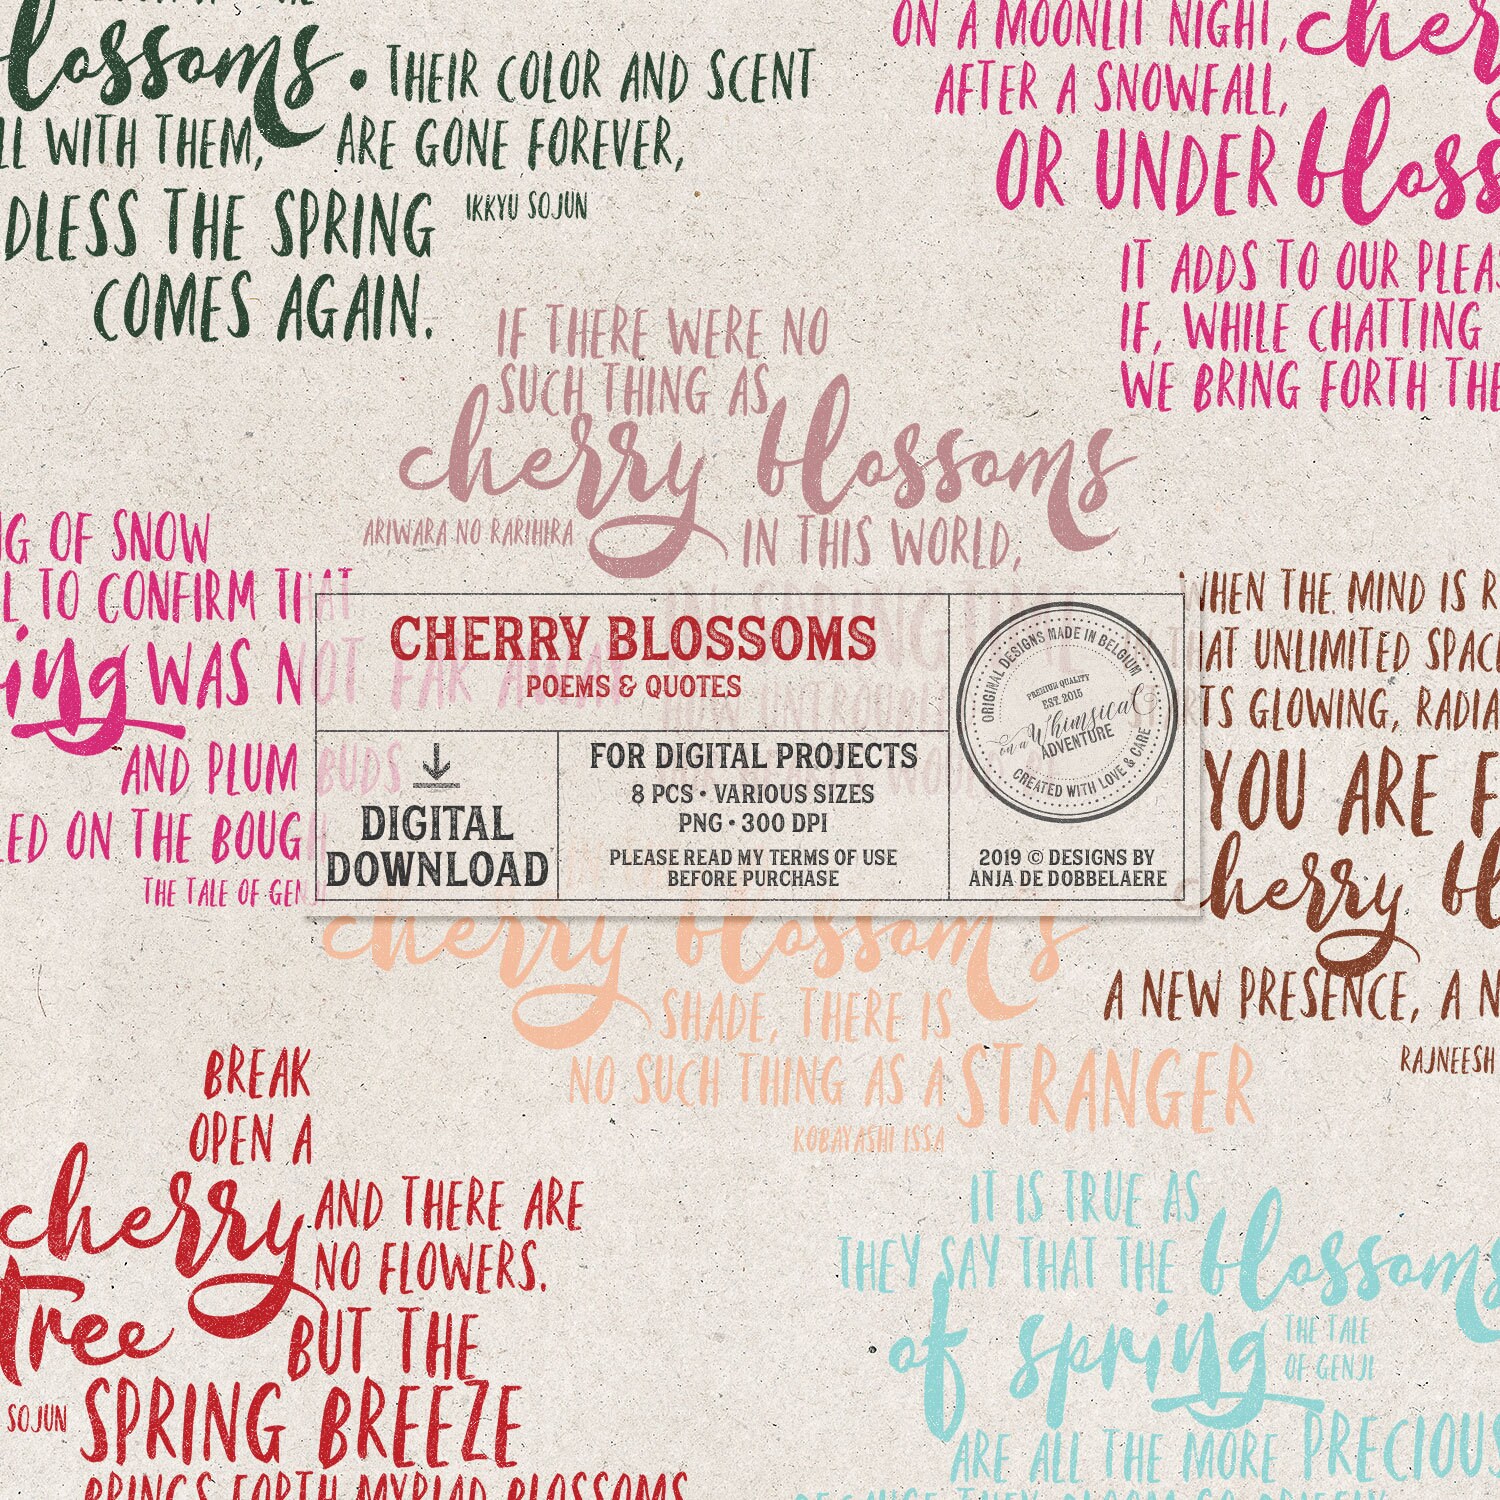 blossoms. THEIR COLOR AND SCENT
WITH THEM, ARE GONE FOREVER,
THE SPRING
COMES AGAIN.
IKKYU SOJUN
ON A MOONLIT NIGHT,
AFTER A SNOWFALL,
OR UNDER
IT ADDS TO OUR
IF, WHILE CHATTING
WE BRING FORTH
IF THERE WERE NO
SUCH THING AS
cherry blossoms
ARIWARA NO RARIHIRA
IN THIS WORLD,
OF SNOW
TO CONFIRM THAT
WAS NOT FAR AWAY
AND PLUM BUDS
ON THE BOUGH
THE TALE OF GENJI
CHERRY BLOSSOMS
POEMS & QUOTES
DIGITAL
DOWNLOAD
FOR DIGITAL PROJECTS
8 PCS • VARIOUS SIZES
PNG • 300 DPI
PLEASE READ MY TERMS OF USE
BEFORE PURCHASE
ORIGINAL DESIGNS MADE IN BELGIUM
PREMIUM QUALITY
EST. 2015
on a Whimsical
ADVENTURE
CREATED WITH LOVE & CARE
2019 © DESIGNS BY
ANJA DE DOBBELAERE
WHEN THE MIND IS
THAT UNLIMITED
GLOWING,
YOU ARE
cherry
A NEW PRESENCE, A
RAJNEESH
cherry blossom's
SHADE, THERE IS
NO SUCH THING AS A STRANGER
KOBAYASHI ISSA
BREAK
OPEN A
cherry AND THERE ARE
tree NO FLOWERS.
BUT THE
SOJUN SPRING BREEZE
BRINGS FORTH MYRIAD BLOSSOMS
IT IS TRUE AS
THEY SAY THAT THE blossoms
of spring THE TALE
OF GENJI
ARE ALL THE MORE PRECIOUS
BECAUSE THEY BLOOM SO BRIEFLY